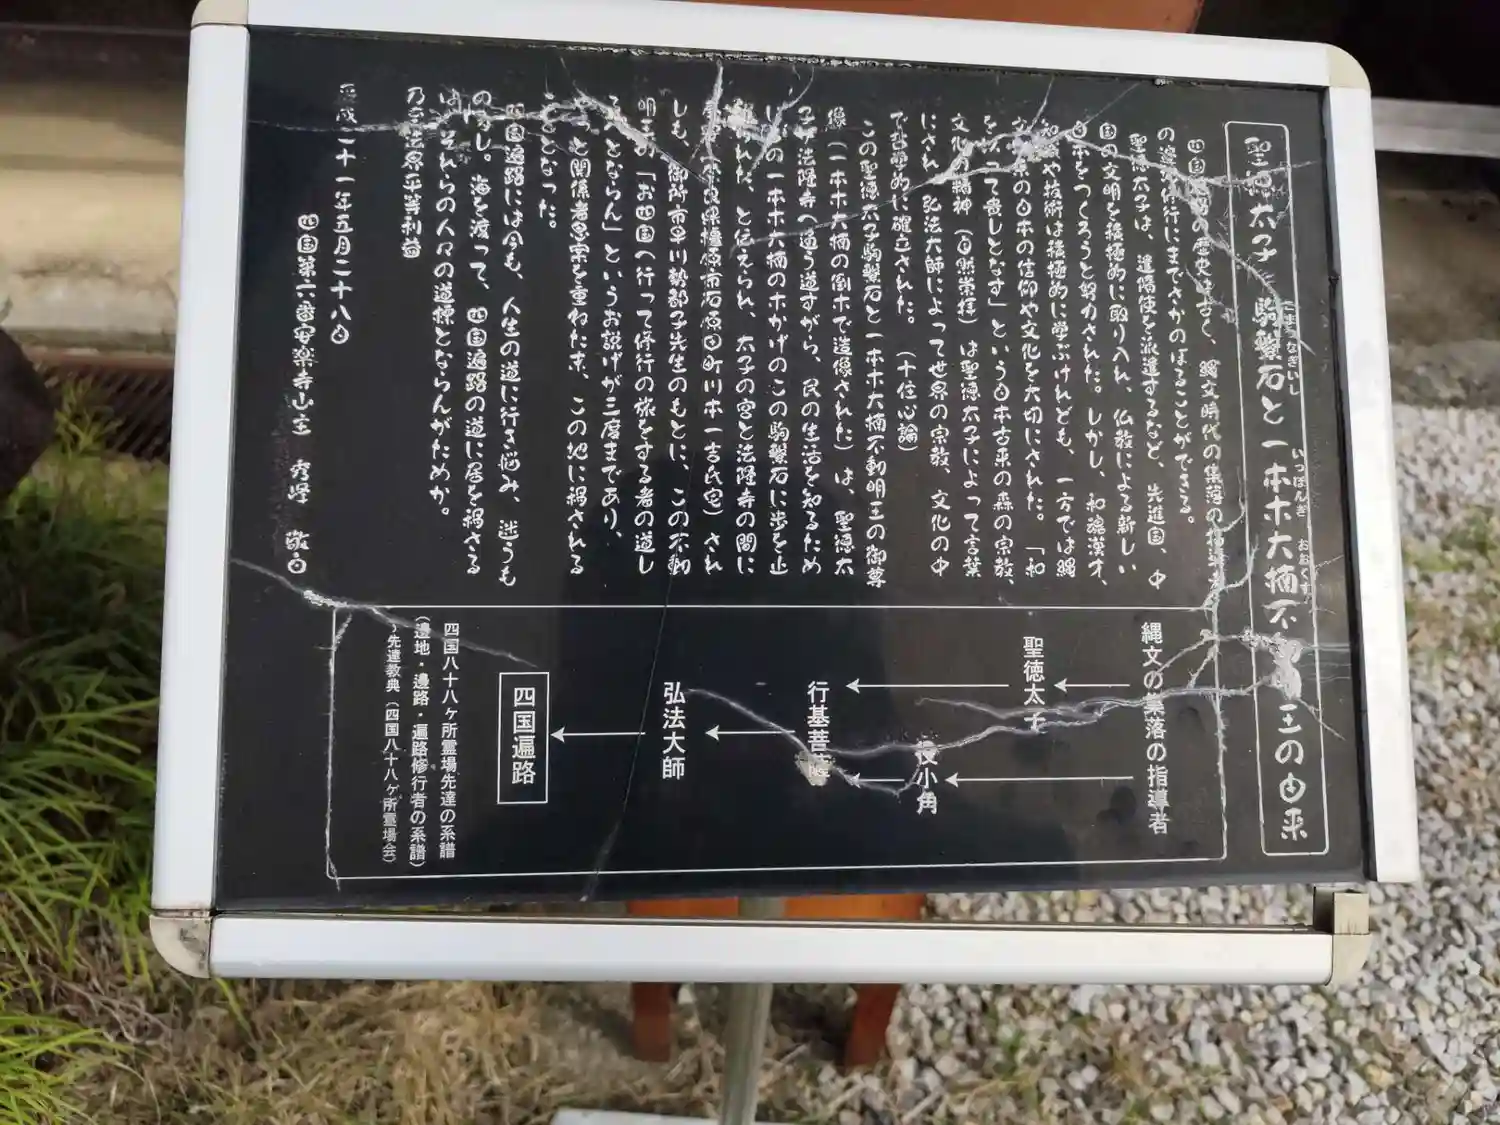 聖徳太子 駒繫石と一本木大楠不 王の由来
こまつなぎいし
いっぽんぎ
おおくす
四国 の歴史は古く、縄文時代の集落の
の邊 修行にまでさかのぼることができる。
聖徳太子は、遣隋使を派遣するなど、先進国、中
国の文明を積極的に取り入れ、仏教による新しい
日本をつくろうと努力された。しかし、和魂漢才、
知識や技術は積極的に学ぶけれども、一方では縄
の日本の信仰や文化を大切にされた。「和
を って貴しとなす」という日本古来の森の宗教、
文化の精神(自然崇拝)は聖徳太子によって言葉
にされ弘法大師によって世界の宗教、文化の中
で哲学的に確立された。(十住心論)
この聖徳太子駒繫石と一本木大楠不動明王の御尊
像(一本木大楠の倒木で造像された)は、聖徳太
子が法隆寺へ通う道すがら、民の生活を知るため
の一本木大楠の木かげのこの駒繫石に歩を止
られた、と伝えられ、太子の宮と法隆寺の間に
良県橿原市石原田町川本一吉氏宅)され
しも、御所市早川勢都子先生のもとに、この不動
明王の「お四国へ行って修行の旅をする者の道し
るべとならん」というお説げが三度まであり、
と関係者思案を重ねた末、この地に祠される
こととなった。
四国遍路には今も、人生の道に行き悩み、迷うも
の なし。海を渡って、四国遍路の道に居を祠さる
は、それらの人々の道標とならんがためか。
乃至法界平等利益
平成二十一年五月二十八日
四国第六番安楽寺山主 秀峰 敬白
縄文の集落の指導者
聖徳太子
役小角
行基菩薩
弘法大師
四国遍路
四国八十八ヶ所霊場先達の系譜
(邊地・邊路・遍路修行者の系譜)
先達教典(四国八十八ヶ所霊場会)